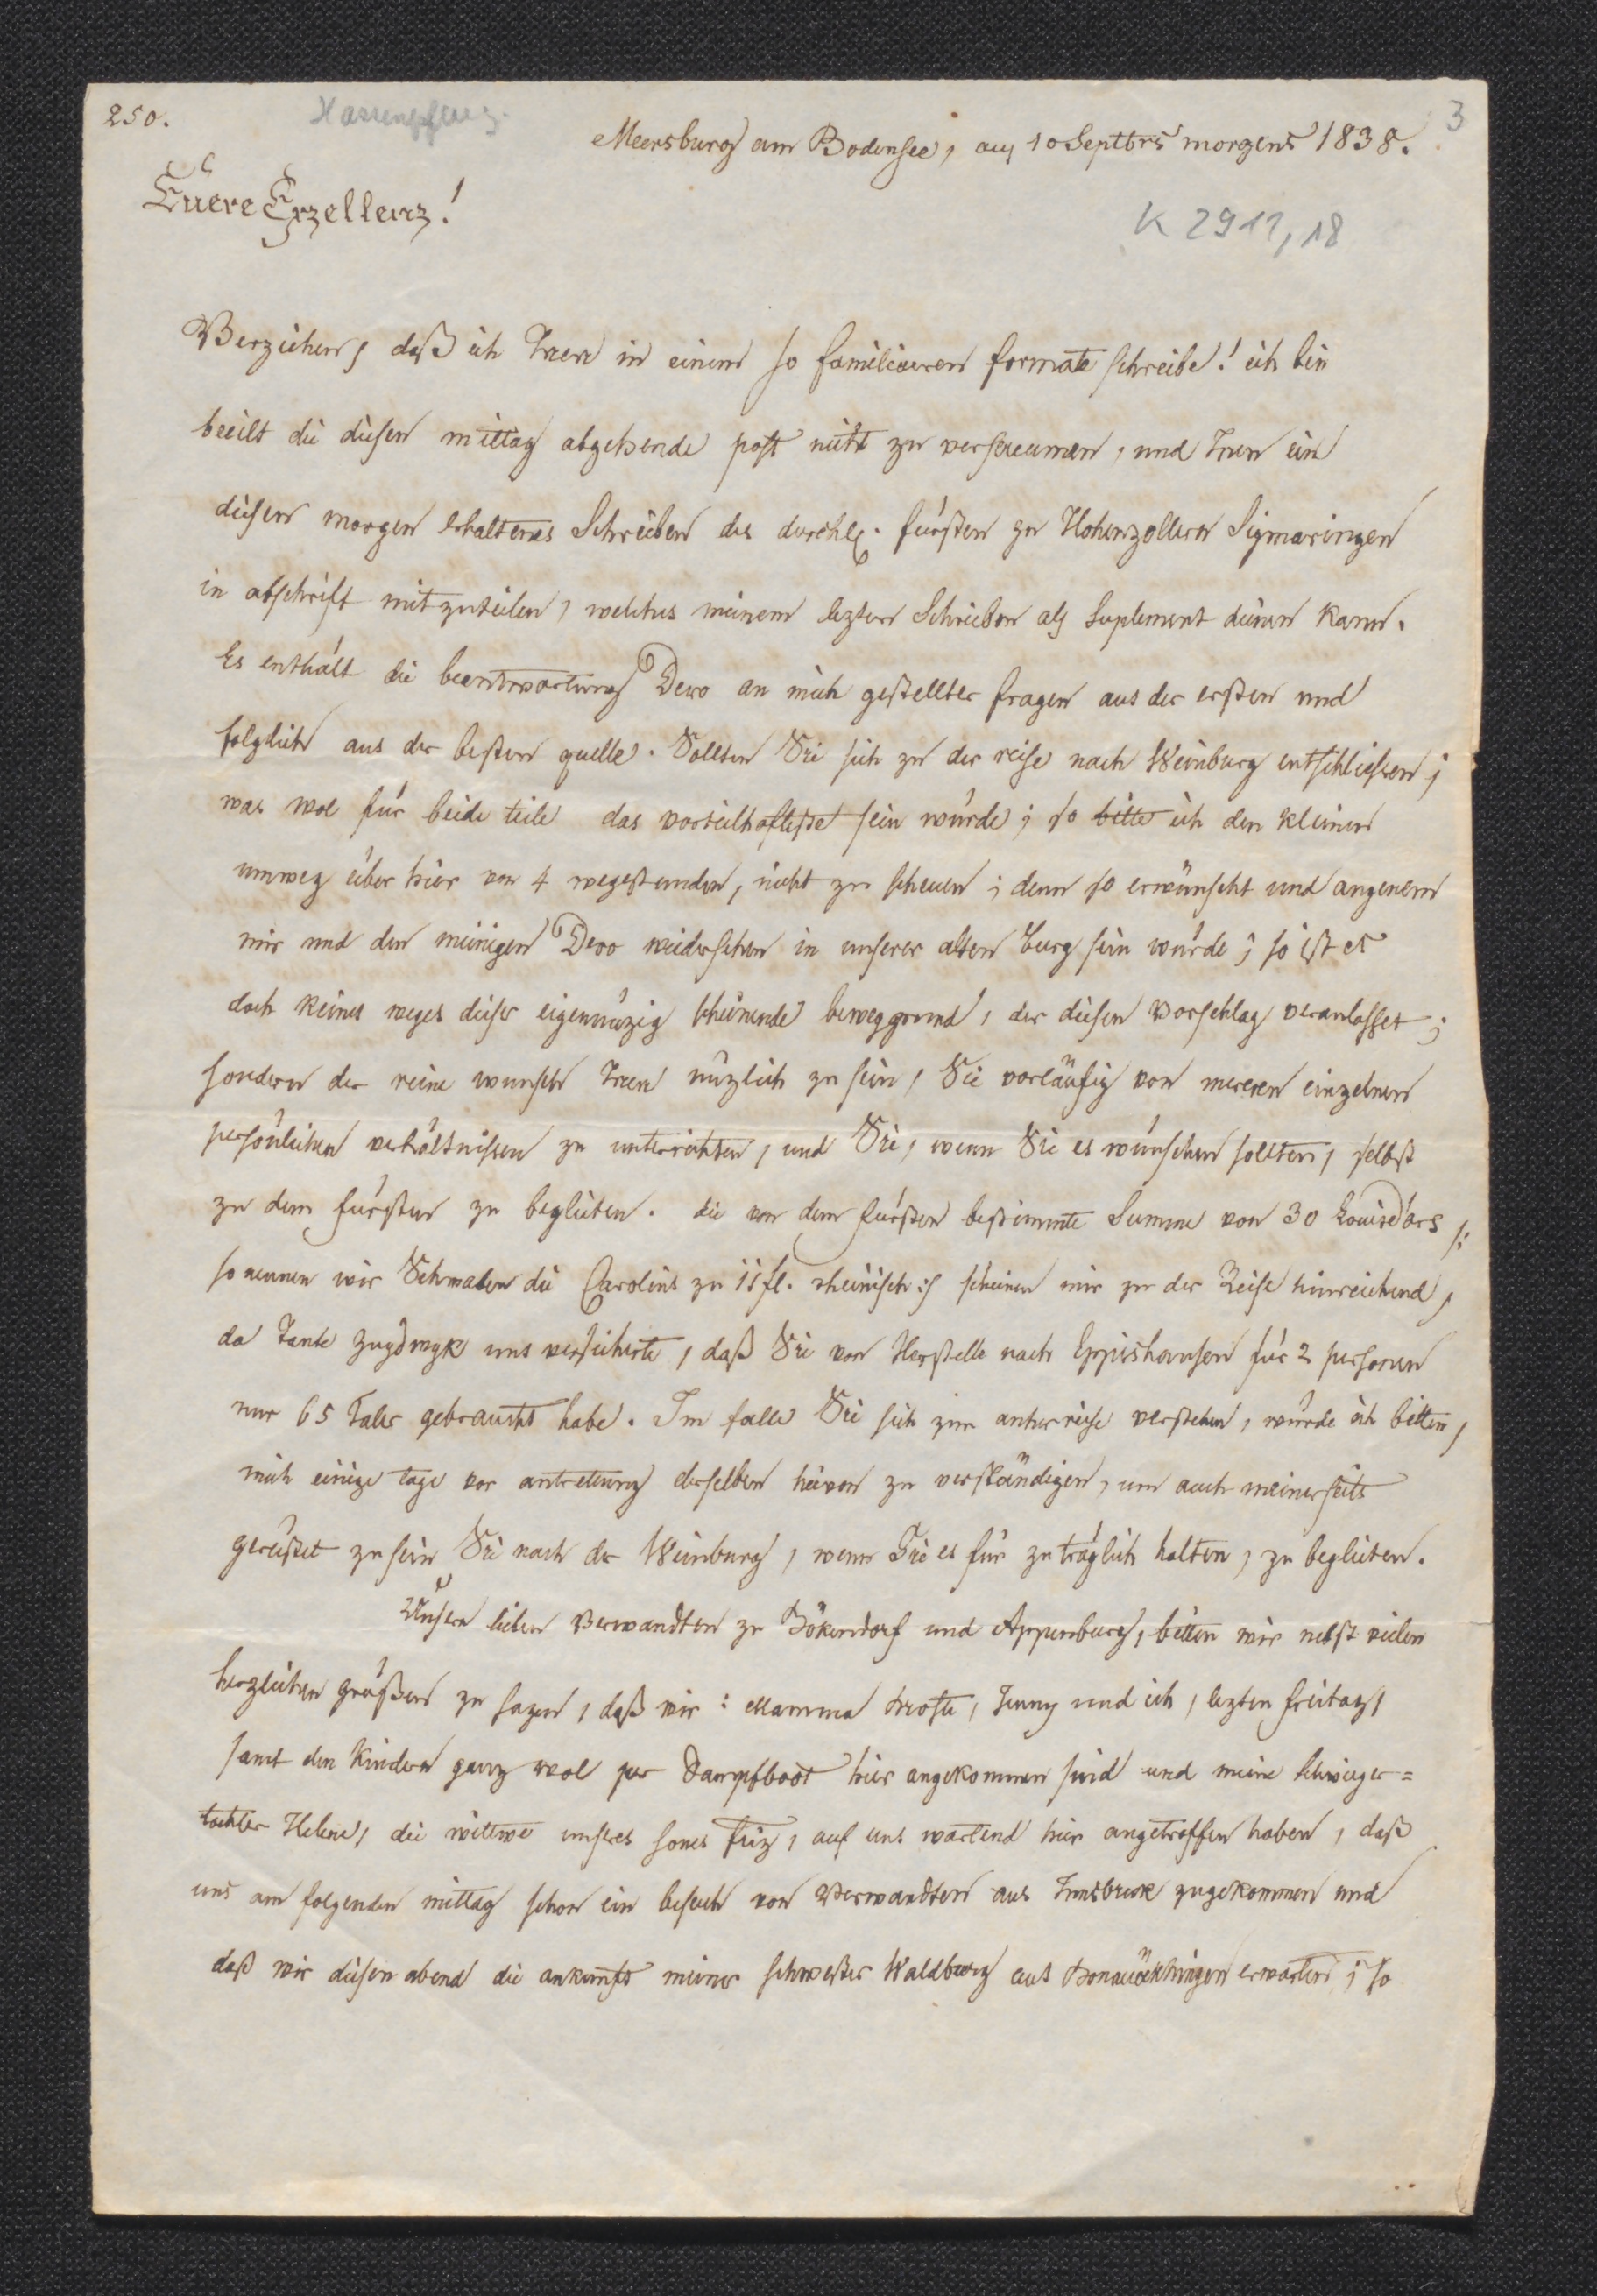 250.
Hassenpflug.
3
Meersburg am Bodensee, am 10 Septbrs morgens 1838.
Euere Exzellenz!
K 2911, 18
Verzeihen, daß ich Inen in einem so familiaeren formate schreibe! ich bin
beeilt die diesen mittag abgehende post nicht zu versaeumen, und Inen ein
diesen morgen erhaltenes Schreiben des durchl. fürsten zu Hohenzollern Sigmaringen
in abschrift mitzuteilen, welches meinem lezten Schreiben als Suplement dienen kann.
Es enthält die beantwortung Dero an mich gestellter fragen aus der ersten und
folglich aus der besten quelle. Sollten Sie sich zu der reise nach Weinburg entschliessen;
was wol für beide teile das vorteilhafteste sein würde; so bitte ich den kleinen
umweg über hier von 4 wegestunden, nicht zu scheuen; denn so erwünscht und angenem
mir und den meinigen Dero wiedersehen in unserer alten burg sein würde; so ist es
doch keines weges dieser eigennüzig scheinende beweggrund, der diesen Vorschlag veranlasset;
sondern der reine wunsch Inen nüzlich zu sein, Sie vorläufig von mereren einzelnen
persönlichen verhältnissen zu unterrichten, und Sie, wenn Sie es wünschen sollten, selbst
zu dem fürsten zu begleiten. die von dem fürsten bestimmte Summe von 30 Louisd'ors /:
so nennen wir Schwaben die Carolins zu 11 fl. rheinisch :/ scheinen mir zu der Reise hinreichend,
da Tante Zuydwyk uns versicherte, daß Sie von Herstelle nach Eppishausen für 2 personen
nur 65 Taler gebraucht habe. Im falle Sie sich zur anher reise verstehen, würde ich bitten,
mich einige tage vor antretung derselben hievon zu verständigen, um auch meinerseits
gerüstet zu sein Sie nach der Weinburg, wenn Sie es für zuträglich halten, zu begleiten.
Unsern lieben Verwandten zu Bökendorf und Appenburg, bitten wir nebst vielen
herzlichen grüßen zu sagen, daß wir: Mamma Droste, Jenny und ich, lezten freitag,
samt den Kindern ganz wol per Dampfboot hier angekommen sind und meine schwieger=
tochter Helene, die wittwe unseres sones friz, auf uns wartend hier angetroffen haben, daß
uns am folgenden mittag schon ein besuch von Verwandten aus Innsbruck zugekommen und
daß wir diesen abend die ankunft meiner schwester Waldburg aus Donauöschingen erwarten; so